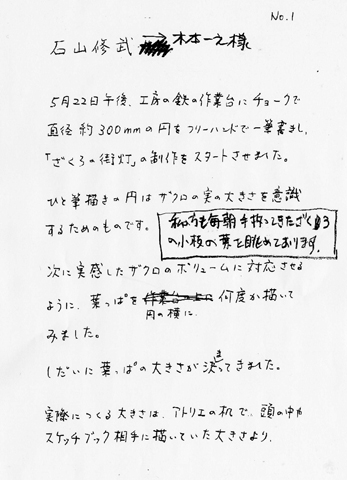 No.1
石山修武 → 木本一之様
5月22日午後、工房の鉄の作業台にチョークで
直径約300mmの円をフリーハンドで一筆書きし、
「ざくろの街灯」の制作をスタートさせました。
ひと筆描きの円はザクロの実の大きさを意識
するためのものです。
私の方も毎朝手折ってきたざくろ
の小枝の葉を眺めております。
次に実感したザクロのボリュームに対応させる
ように、葉っぱを円の横に何度か描いて
みました。
しだいに葉っぱの大きさが決まってきました。
実際につくる大きさは、アトリエの机で、頭の中や
スケッチブック相手に描いていた大きさより、